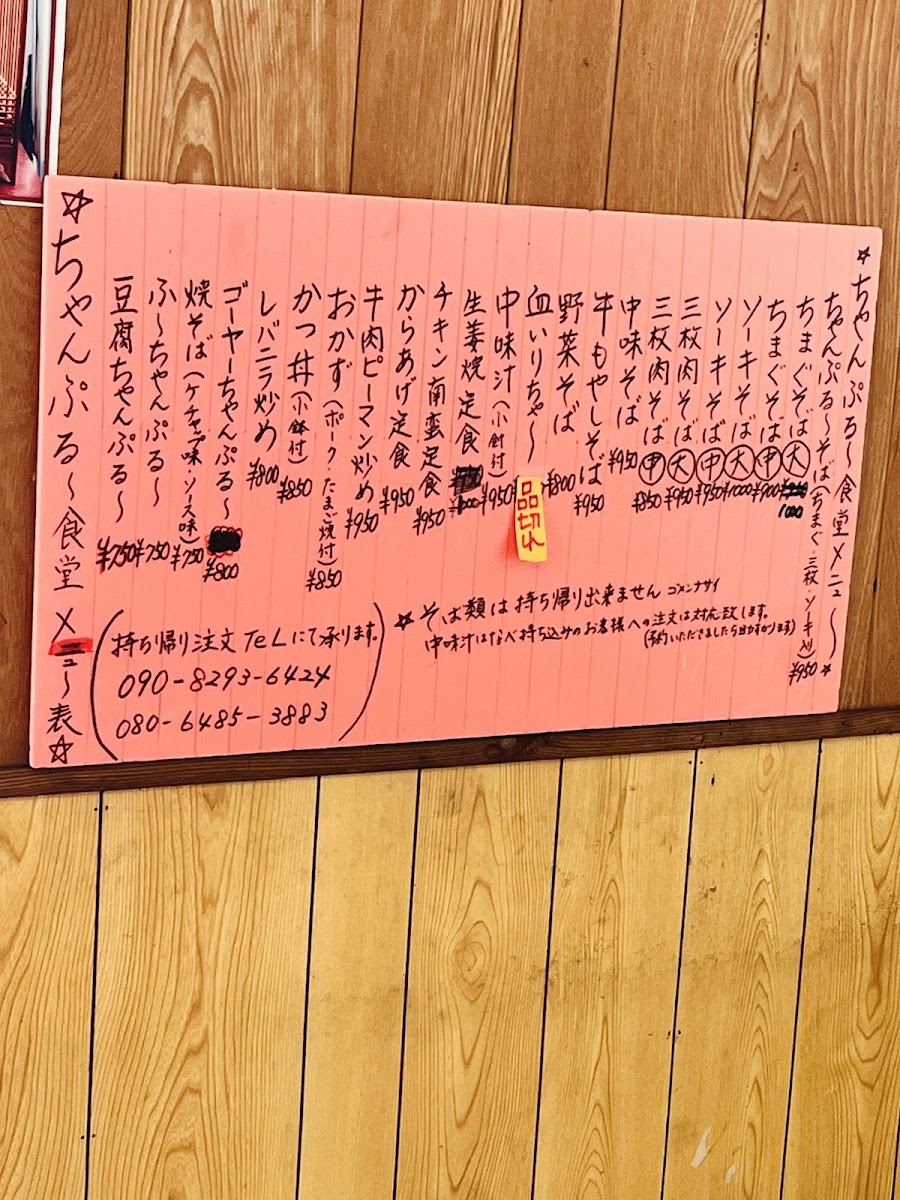 ☆ちゃんぷる〜食堂メニュ〜☆
ちゃんぷる〜そば(ちまぐ・三枚・ソーキ入) ¥950
ちまぐそば 大 1000
ちまぐそば 中 ¥900
ソーキそば 大 ¥1000
ソーキそば 中 ¥950
三枚肉そば 大 ¥950
三枚肉そば 中 ¥850
中味そば ¥950
牛もやしそば ¥950
野菜そば ¥800
血いりちゃ〜 品切れ
中味汁(小鉢付) ¥950
生姜焼定食 ¥1000
チキン南蛮定食 ¥950
からあげ定食 ¥950
牛肉ピーマン炒め ¥950
おかず(ポーク・たまご焼付) ¥850
かつ丼(小鉢付) ¥850
レバニラ炒め ¥800
ゴーヤーちゃんぷる〜 ¥800
焼そば(ケチャップ味・ソース味) ¥750
ふ〜ちゃんぷる〜 ¥750
豆腐ちゃんぷる〜 ¥750
☆ちゃんぷる〜食堂メニュ〜表☆
☆そば類は持ち帰り出来ません ゴメンナサイ
中味汁はなべ持ち込みのお客様への注文は対応致します。
(予約いただきましたら助かります)
(持ち帰り注文TeLにて承ります。
090-8293-6424
080-6485-3883)